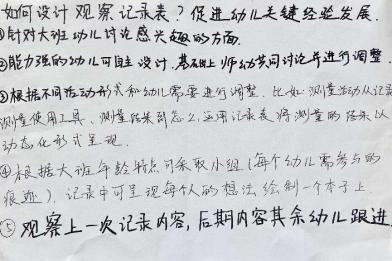 如何设计观察记录表？促进幼儿关键经验发展.
①针对大班幼儿讨论感兴趣的方面.
②能力强的幼儿可自主设计,基础上师幼共同讨论并进行调整.
③根据不同活动形式和幼儿需要进行调整.比如:测量活动从记录
测量使用工具、测量结果到怎么运用记录表将测量的结果以
动态化形式呈现.
④根据大班年龄特点可采取小组(每个幼儿需参与的
痕迹).记录中可呈现每个人的想法绘制一个本子上.
⑤观察上一次记录内容,后期内容其余幼儿跟进